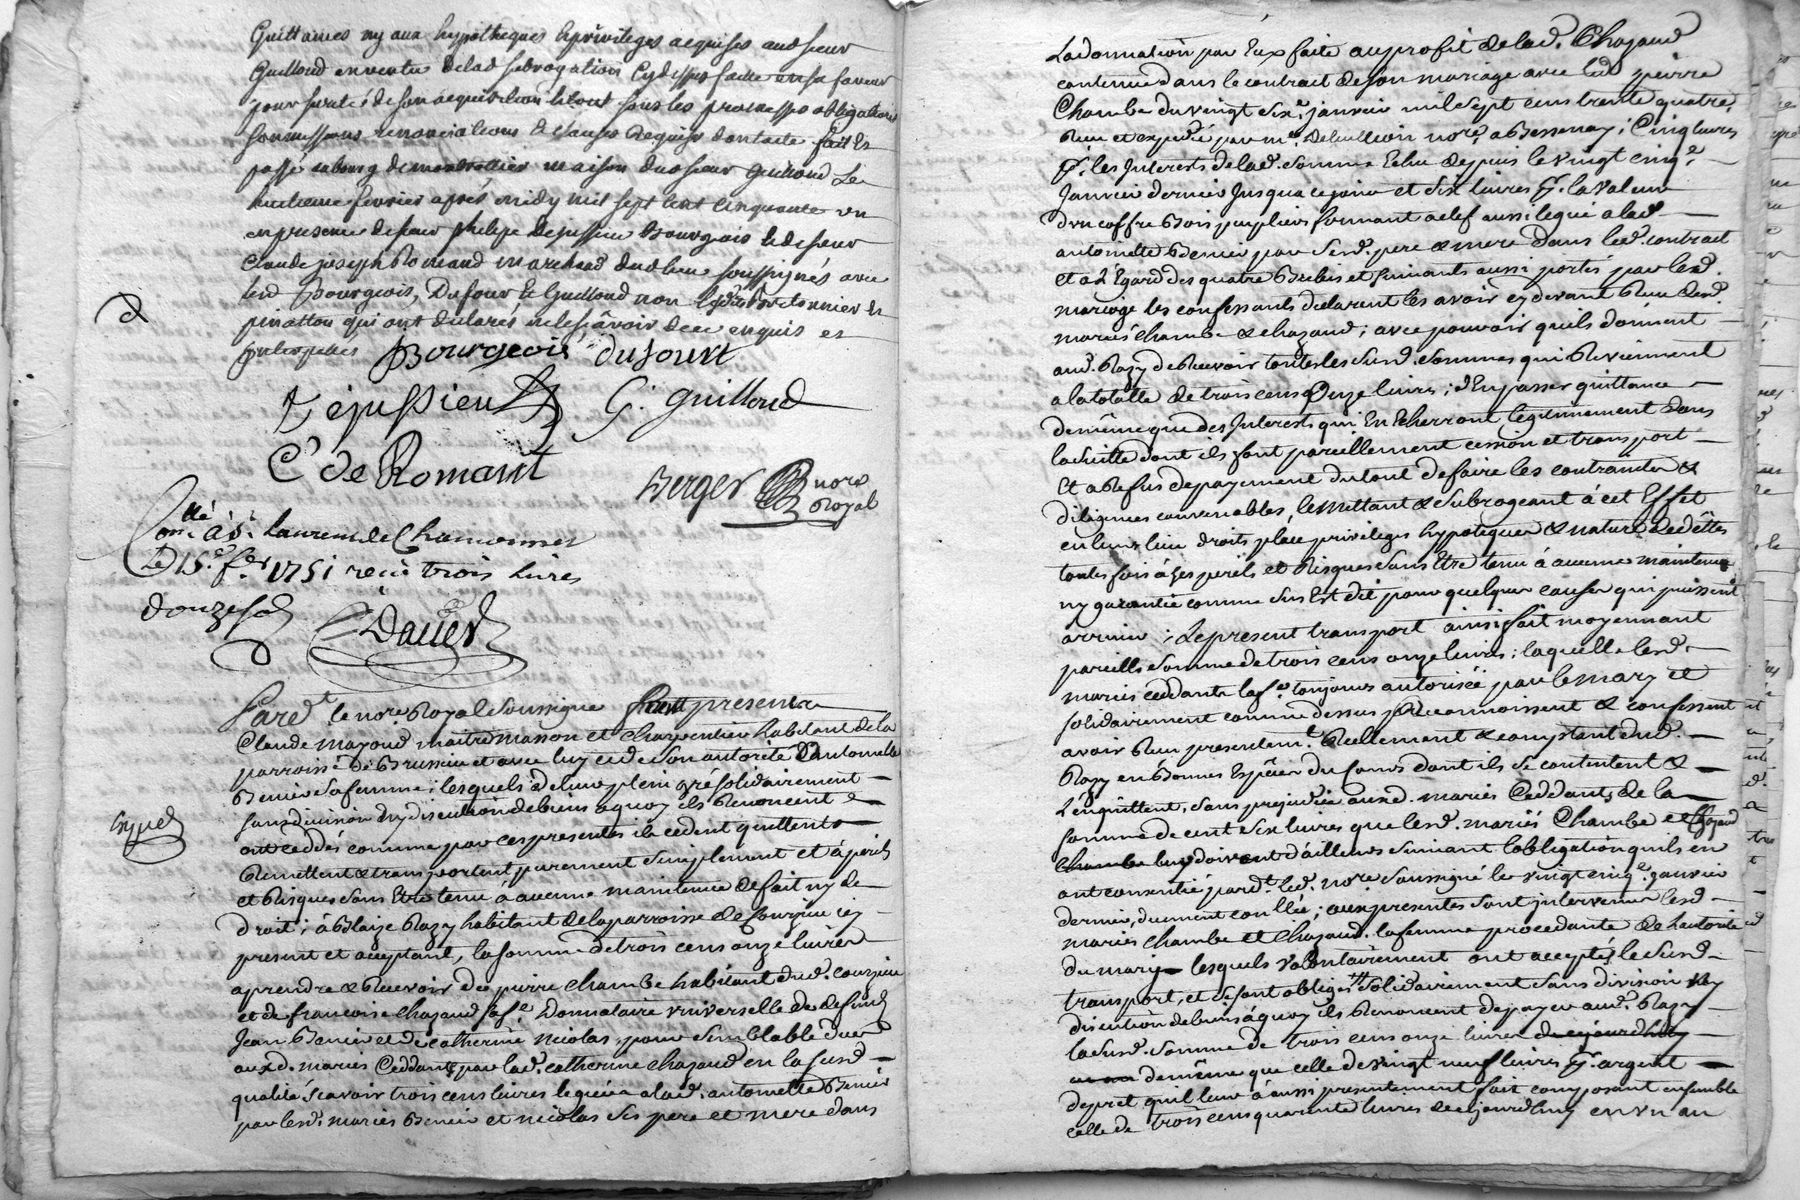 Quittances ny aux hypotheques & privileges acquises audsieur
Guilloud en vertu de lad. subrogation cydessus faite en sa faveur
pour sureté de son acquisition le tout sous les promesses obligations
soumissions renonciations & clauses requises dont acte fait &
passé au bourg de montrottier maison dud sieur Guilloud Le
huitieme fevrier aprés midy mil sept cent cinquante un
en presence de sieur philipe Dejussieu Bourgois & de sieur
Claude joseph Romand marchand dud lieu soussignés avec
lesd Bourgeois, Dufour & Guilloud non led.
pinatton qui ont declarés ne le sçavoir de ce enquis et
interpellés Bourgeois dufourt
Dejussieu G. guilloud
C De Romant
Berger nore
Royal
Conllé à St Laurent de Chamousset
Le 15e fer 1751 receu trois livres
douze s
Dauer
Pardt le nore Royal soussigné fut present
Claude mazoud maitre masson et charpentier habitant de la
parroisse de Brussieu et avec luy et de son autorité antoinette
Benier sa femme; lesquels de leur plein gré solidairement
sans division ny discution de biens a quoy ils Renoncent
expied
ont ceddés comme par ces presentes ils cedent quittent
Remettent & transportent purement simplement et à perils
et Risques sans Etre tenu à aucune maintenue de fait ny de
droit; à Blaize Razy habitant de la parroisse de Courzieu icy
present et acceptant, la somme de trois cens onze livres
a prendre & Recevoir de pierre chambe habitant dud. courzieu
et de francoise chazaud sa fe Donnataire universelle de deffunts
Jean Benier et de catherine nicolas, pour semblable due
auxd. mariés Ceddants par lad. catherine chazaud en la susd
qualité sçavoir trois cens livres leguée a lad. antoinette Benier
par lesd. mariés Benier et nicolas ses pere et mere dans
La donnation par Eux faite au profit de lad. Chazaud
contenue dans le contrat de son mariage avec led pierre
Chambe du vingt sixe janvier mil sept cens trente quatre,
Receu et expedié par me Debullion nore a Bessenay; Cinq livres
pr. les Interests de lad. somme Echu depuis le vingt cinqe
Janvier dernier Jusqua ce jour et six livres pr. la valeur
dun coffre Bois peuplier fermant a clef aussi legué a lad
antoinette Benier par sesd. pere & mere dans led. contract
et a L'Egard des quatre Brebis et suivants aussi portés par led.
mariage les confessants declarent les avoir cy devant Receu desd.
mariés chambe & chazaud; avec pouvoir quils donnent
aud. Razy de Recevoir toutes les susd. sommes qui Reviennent
a la totalle de trois cens onze livres; d'En passer quittance
de même que des Interests qui En Echerront legitimement dans
la suitte dont ils font pareillement cession et transport
Et a Refus de payement du tout de faire les contraintes &
diligences convenables, le mettant & subrogeant à cet Effet
en leurs lieu droits place privileges hypoteques & nature de dettes
toutes fois à ses perils et Risques sans Etre tenu à aucune maintenue
ny garantie comme sus Est dit pour quelques causes qui puissent
arriver; Le present transport ainsi fait moyennant
pareille somme de trois cens onze livres; laquelle lesd.
mariés ceddants la fe toujours autorisée par le mary et
solidairement comme dessus Reconnoissent & confessent
avoir Receu presentemt Reellement & comptant dud.
Razy en Bonnes Espèces du cours dont ils se contentent &
L'en quittent, sans prejudice auxd. mariés Ceddants de la
somme de cent six livres que lesd. mariés Chambe et Chazaud
Chambe leur doivent d'ailleurs suivant l'obligation quils en
ont consentie pardt led. nore soussigné le vingt cinqe janvier
dernier, duement conllée; aux presentes sont intervenus lesd
mariés Chambe et Chazaud. la femme procedante de l'autorité
du mary lesquels volontairement ont accepté le susd
transport, et se sont obligés solidairement sans division ny
discution de biens à quoy ils Renoncent de payer aud. Razy
la susd. somme de trois cens onze livres de ce jourdhuy
en un de même que celle de vingt neuf livres pr. argent
de pret quil leur à aussi presentement fait composant ensemble
celle de trois cens quarante livres de cejourdhuy en un an